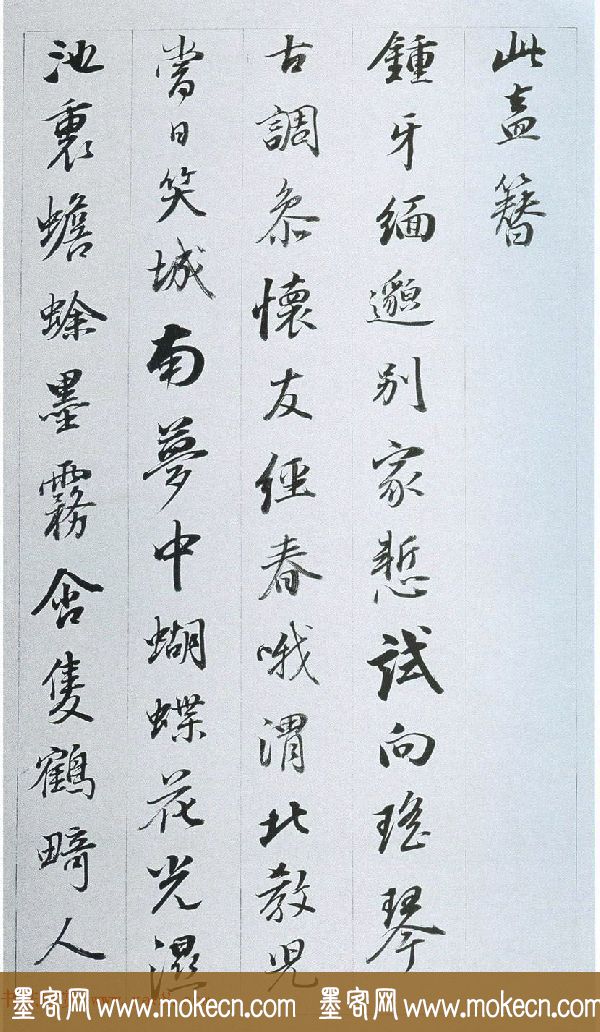 此盍簪
鍾牙緬邈別家慙試向瑤琴
古調叅懷友經春哦渭北教兒
當日笑城南夢中蝴蝶花光濕
池裏蟾蜍墨霧含隻鶴畸人
墨客网 www.mokecn.com 墨客网 www.mokecn.com